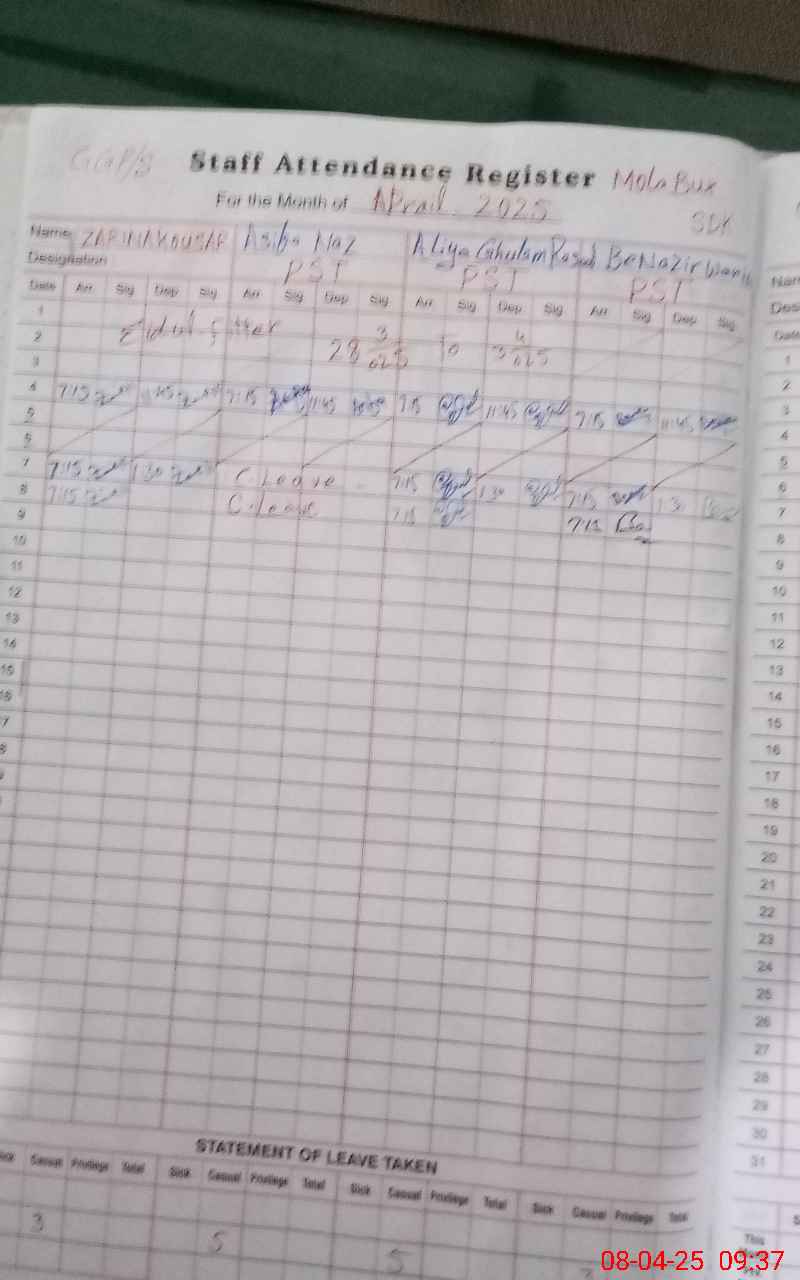 GGP/S Staff Attendance Register Mola Bux
For the Month of APrail 2025 SDK
Name ZARINAKOUSAR Asiba Naz Aliya Ghulam Rasul BeNazir
Designation PST PST PST
Date Arr Sig Dep Sig Arr Sig Dep Sig Arr Sig Dep Sig Arr Sig Dep Sig
1
2 Eidul fitter 28 3/025 To 3 4/025
3
4 7:15 11:45 7:15 11:45 7:15 11:45 7:15 11:45
5
6
7 7:15 1:30 C.Leave 7:15 1:30 7:15 1:30
8 7:15 C.Leave 7:15 7:15
9
10
11
12
13
14
15
16
7
8
STATEMENT OF LEAVE TAKEN
Sick Casual Privilege Total Sick Casual Privilege Total Sick Casual Privilege Total Sick Casual Privilege Total
3 5 5
1
2
3
4
5
6
7
8
9
10
11
12
13
14
15
16
17
18
19
20
21
22
23
24
25
26
27
28
29
30
31
This
08-04-25 09:37